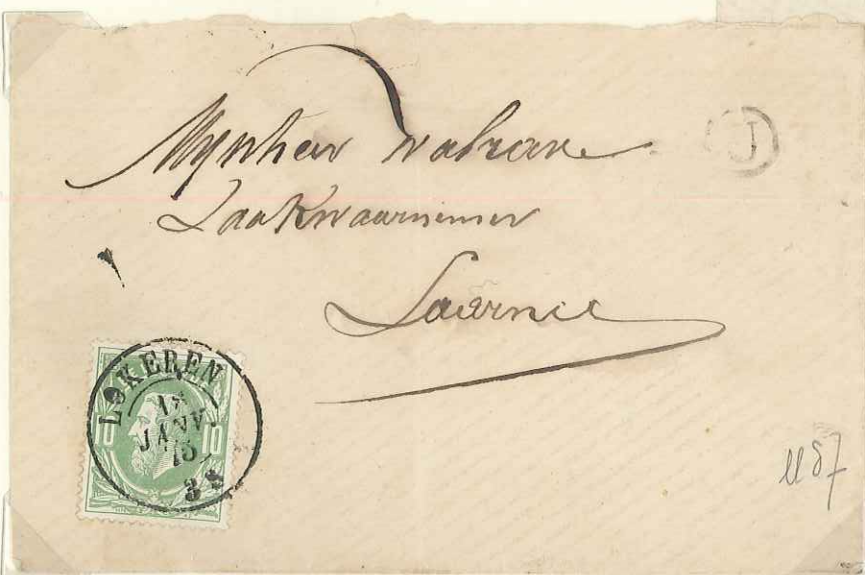 Mynheer Walrave
Zaakwaarnemer
Laerne
J
LOKEREN
JANV.
75
10 10
1187